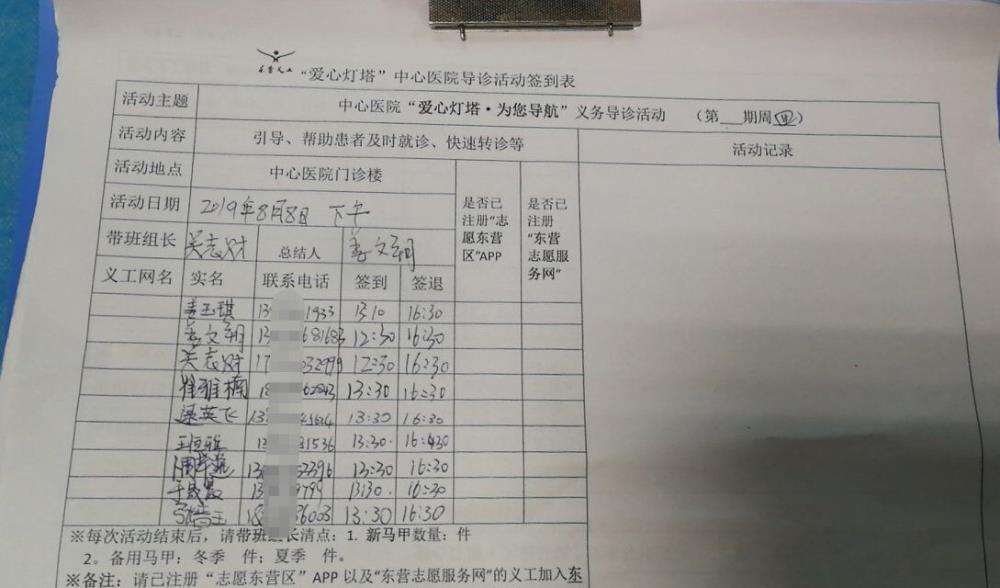 东营义工
“爱心灯塔”中心医院导诊活动签到表
活动主题 中心医院“爱心灯塔·为您导航”义务导诊活动 （第 期周四）
活动内容 引导、帮助患者及时就诊、快速转诊等 活动记录
活动地点 中心医院门诊楼 是否已注册“志愿东营区”APP 是否已注册“东营志愿服务网”
活动日期 2019年8月8日 下午
带班组长 吴志财 总结人 姜文翔
义工网名 实名 联系电话 签到 签退
姜玉琪 13 1933 13:10 16:30
姜文翔 13 681683 12:30 16:30
吴志财 17 032999 12:30 16:30
崔雅楠 18 13:30 16:30
梁英飞 13 13:30 16:30
13 31536 13:30 16:30
13 52396 13:30 16:30
13 9799 13:30 16:30
18 36003 13:30 16:30
※每次活动结束后，请带班组长清点：1. 新马甲数量： 件
2。备用马甲：冬季 件；夏季 件。
※备注：请已注册“志愿东营区”APP以及“东营志愿服务网”的义工加入东